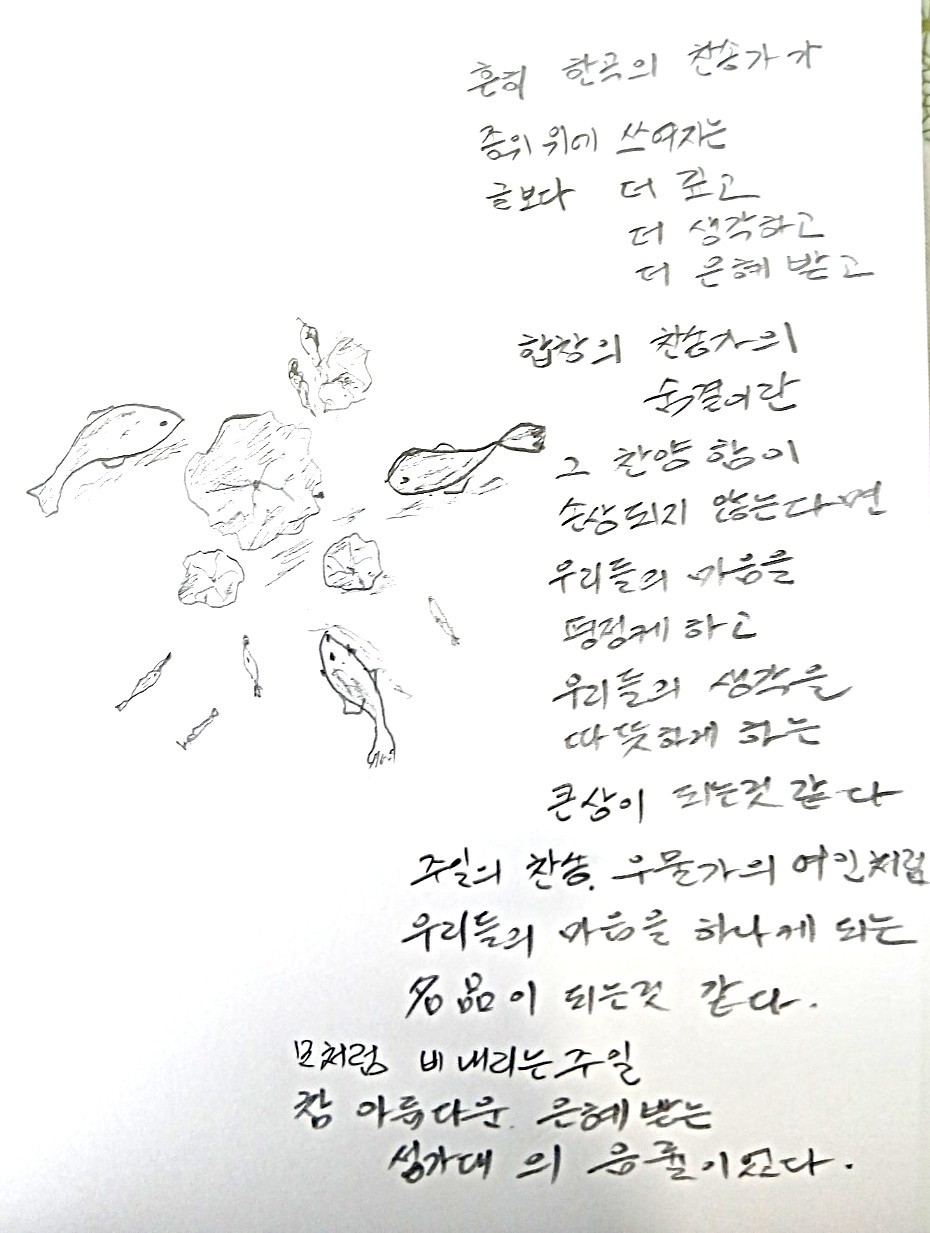 흔히 한곡의 찬송가가
종위 위에 쓰여지는
글보다 더 깊고
더 생각하고
더 은혜 받고
합창의 찬송가의
숨결이란
그 찬양함이
손상되지 않는다면
우리들의 마음을
평정케 하고
우리들의 생각을
따뜻하게 하는
큰상이 되는것 같다
주일의 찬송, 우물가의 여인처럼
우리들의 마음을 하나게 되는
名品이 되는것 같다.
모처럼 비 내리는 주일
참 아름다운. 은혜 받는
성가대의 음률이였다.